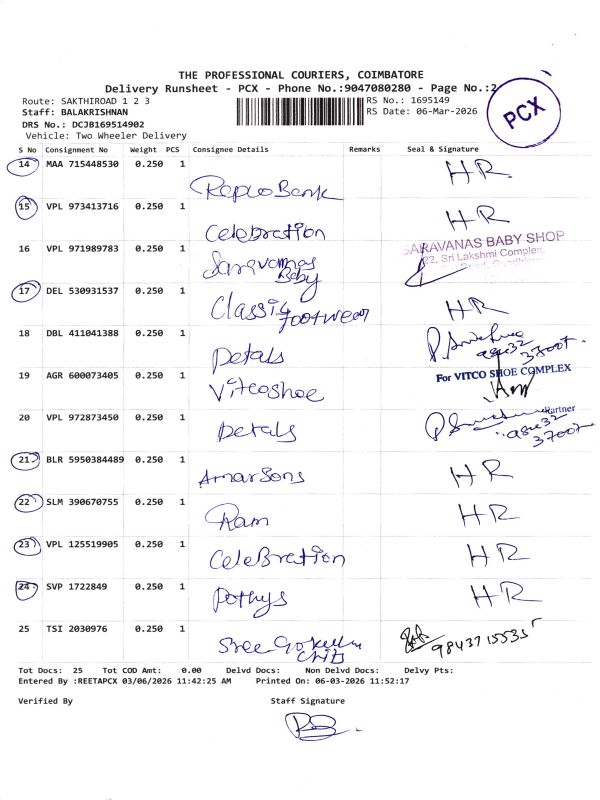 THE PROFESSIONAL COURIERS, COIMBATORE
Delivery Runsheet - PCX - Phone No.:9047080280 - Page No.:2
PCX
Route: SAKTHIROAD 1 2 3
RS No.: 1695149
Staff: BALAKRISHNAN
RS Date: 06-Mar-2026
DRS No.: DCJB169514902
Vehicle: Two Wheeler Delivery
S No Consignment No Weight PCS Consignee Details Remarks Seal & Signature
14 MAA 715448530 0.250 1 Repco Bank HR
15 VPL 973413716 0.250 1 Celebration HR
16 VPL 971989783 0.250 1 Saravannas Baby
SARAVANAS BABY SHOP
22, Sri Lakshmi Complex,
17 DEL 530931537 0.250 1 Classic Footwear HR
18 DBL 411041388 0.250 1 Petals
19 AGR 600073405 0.250 1 Vitcoshoe
For VITCO SHOE COMPLEX
Partner
20 VPL 972873450 0.250 1 Petals
21 BLR 5950384489 0.250 1 Amarsons HR
22 SLM 390670755 0.250 1 Ram HR
23 VPL 125519905 0.250 1 CeleBration HR
24 SVP 1722849 0.250 1 Pothys HR
25 TSI 2030976 0.250 1 Sree Gokulam Chits 9843715535
Tot Docs: 25 Tot COD Amt: 0.00 Delvd Docs: Non Delvd Docs: Delvy Pts:
Entered By :REETAPCX 03/06/2026 11:42:25 AM Printed On: 06-03-2026 11:52:17
Verified By Staff Signature